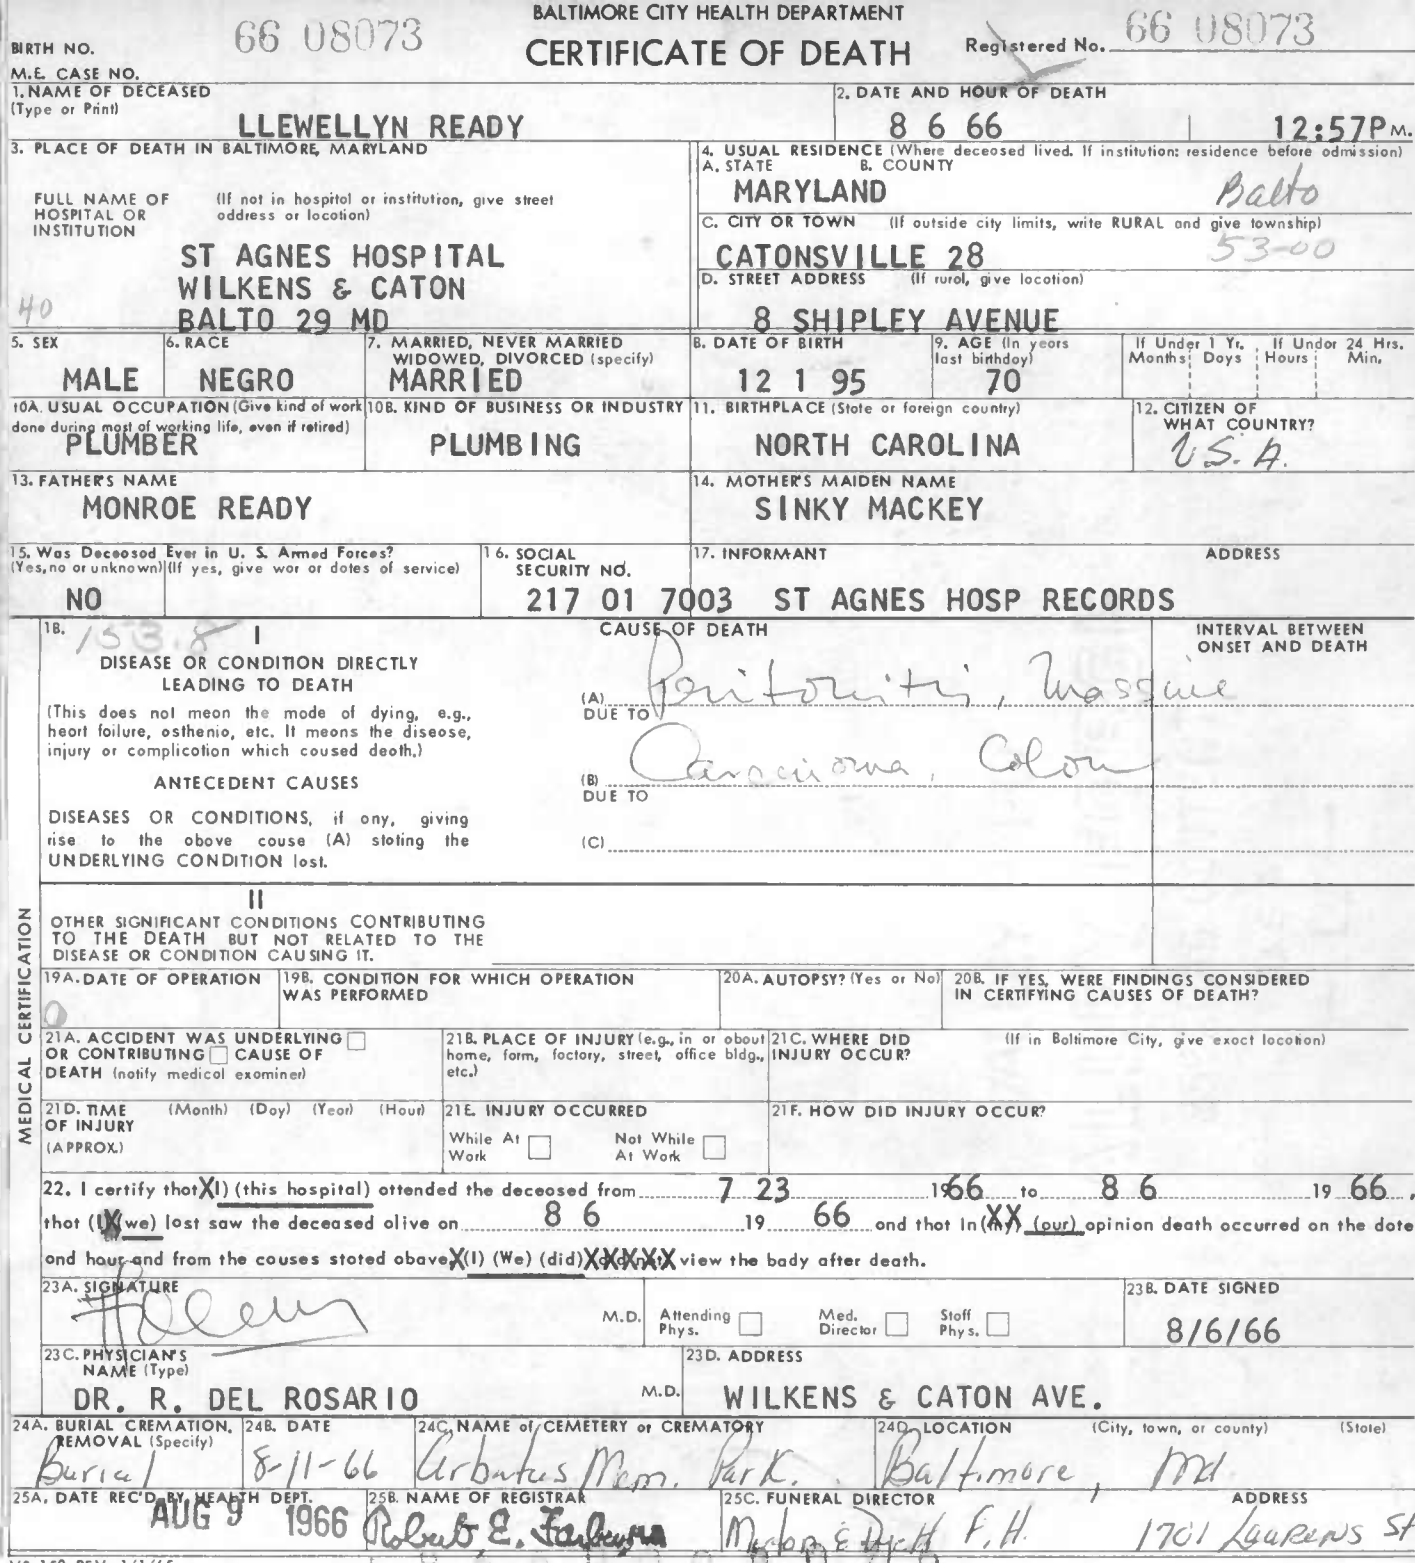 BALTIMORE CITY HEALTH DEPARTMENT
66 08073
CERTIFICATE OF DEATH
Registered No. 66 08073
BIRTH NO.
M.E. CASE NO.
1. NAME OF DECEASED
(Type or Print)
LLEWELLYN READY
2. DATE AND HOUR OF DEATH
8 6 66 12:57P M.
3. PLACE OF DEATH IN BALTIMORE, MARYLAND
FULL NAME OF HOSPITAL OR INSTITUTION
(If not in hospital or institution, give street address or location)
ST AGNES HOSPITAL
WILKENS & CATON
BALTO 29 MD
40
4. USUAL RESIDENCE (Where deceased lived. If institution: residence before admission)
A. STATE B. COUNTY
MARYLAND Balto
C. CITY OR TOWN (If outside city limits, write RURAL and give township)
CATONSVILLE 28 53-00
D. STREET ADDRESS (If rural, give location)
8 SHIPLEY AVENUE
5. SEX
MALE
6. RACE
NEGRO
7. MARRIED, NEVER MARRIED
WIDOWED, DIVORCED (specify)
MARRIED
8. DATE OF BIRTH
12 1 95
9. AGE (In years last birthday)
70
If Under 1 Yr. If Under 24 Hrs.
Months Days Hours Min.
10A. USUAL OCCUPATION (Give kind of work done during most of working life, even if retired)
PLUMBER
10B. KIND OF BUSINESS OR INDUSTRY
PLUMBING
11. BIRTHPLACE (State or foreign country)
NORTH CAROLINA
12. CITIZEN OF WHAT COUNTRY?
U.S.A.
13. FATHER'S NAME
MONROE READY
14. MOTHER'S MAIDEN NAME
SINKY MACKEY
15. Was Deceased Ever in U. S. Armed Forces?
(Yes, no or unknown) (If yes, give war or dates of service)
NO
16. SOCIAL SECURITY NO.
217 01 7003
17. INFORMANT ADDRESS
ST AGNES HOSP RECORDS
MEDICAL CERTIFICATION
18. 153.8 I
DISEASE OR CONDITION DIRECTLY
LEADING TO DEATH
(This does not mean the mode of dying, e.g.,
heart failure, asthenia, etc. It means the disease,
injury or complication which caused death.)
ANTECEDENT CAUSES
DISEASES OR CONDITIONS, if any, giving
rise to the above cause (A) stating the
UNDERLYING CONDITION last.
CAUSE OF DEATH
(A) Peritonitis, Massive
DUE TO
(B) Carcinoma, Colon
DUE TO
(C)
INTERVAL BETWEEN
ONSET AND DEATH
II
OTHER SIGNIFICANT CONDITIONS CONTRIBUTING
TO THE DEATH BUT NOT RELATED TO THE
DISEASE OR CONDITION CAUSING IT.
19A. DATE OF OPERATION
0
19B. CONDITION FOR WHICH OPERATION
WAS PERFORMED
20A. AUTOPSY? (Yes or No)
20B. IF YES, WERE FINDINGS CONSIDERED
IN CERTIFYING CAUSES OF DEATH?
21A. ACCIDENT WAS UNDERLYING
OR CONTRIBUTING CAUSE OF
DEATH (notify medical examiner)
21B. PLACE OF INJURY (e.g., in or about
home, farm, factory, street, office bldg.,
etc.)
21C. WHERE DID (If in Baltimore City, give exact location)
INJURY OCCUR?
21D. TIME (Month) (Day) (Year) (Hour)
OF INJURY
(APPROX.)
21E. INJURY OCCURRED
While At Work Not While At Work
21F. HOW DID INJURY OCCUR?
22. I certify that X(I) (this hospital) attended the deceased from 7 23 1966 to 8 6 19 66.
that (I)X(we) last saw the deceased alive on 8 6 19 66 and that in (my)XX (our) opinion death occurred on the date
and hour and from the causes stated above X(I) (We) (did) XXXXX view the body after death.
23A. SIGNATURE
M.D. Attending Phys. Med. Director Staff Phys.
23B. DATE SIGNED
8/6/66
23C. PHYSICIAN'S
NAME (Type)
DR. R. DEL ROSARIO M.D.
23D. ADDRESS
WILKENS & CATON AVE.
24A. BURIAL CREMATION,
REMOVAL (Specify)
Burial
24B. DATE
8-11-66
24C. NAME of CEMETERY or CREMATORY
Arbutus Mem. Park.
24D. LOCATION (City, town, or county) (State)
Baltimore, Md
25A. DATE REC'D BY HEALTH DEPT.
AUG 9 1966
25B. NAME OF REGISTRAR
Robert E. Farber
25C. FUNERAL DIRECTOR ADDRESS
F.H. 1701 Laurens St